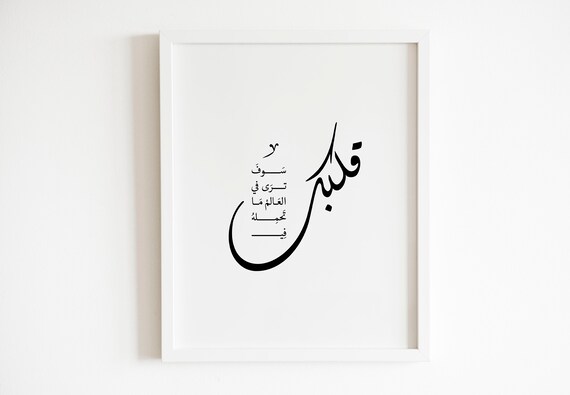 سَوفَ
تَرَى في
العَالمْ مَا
تَحمِلهُ
فِي
قلبك